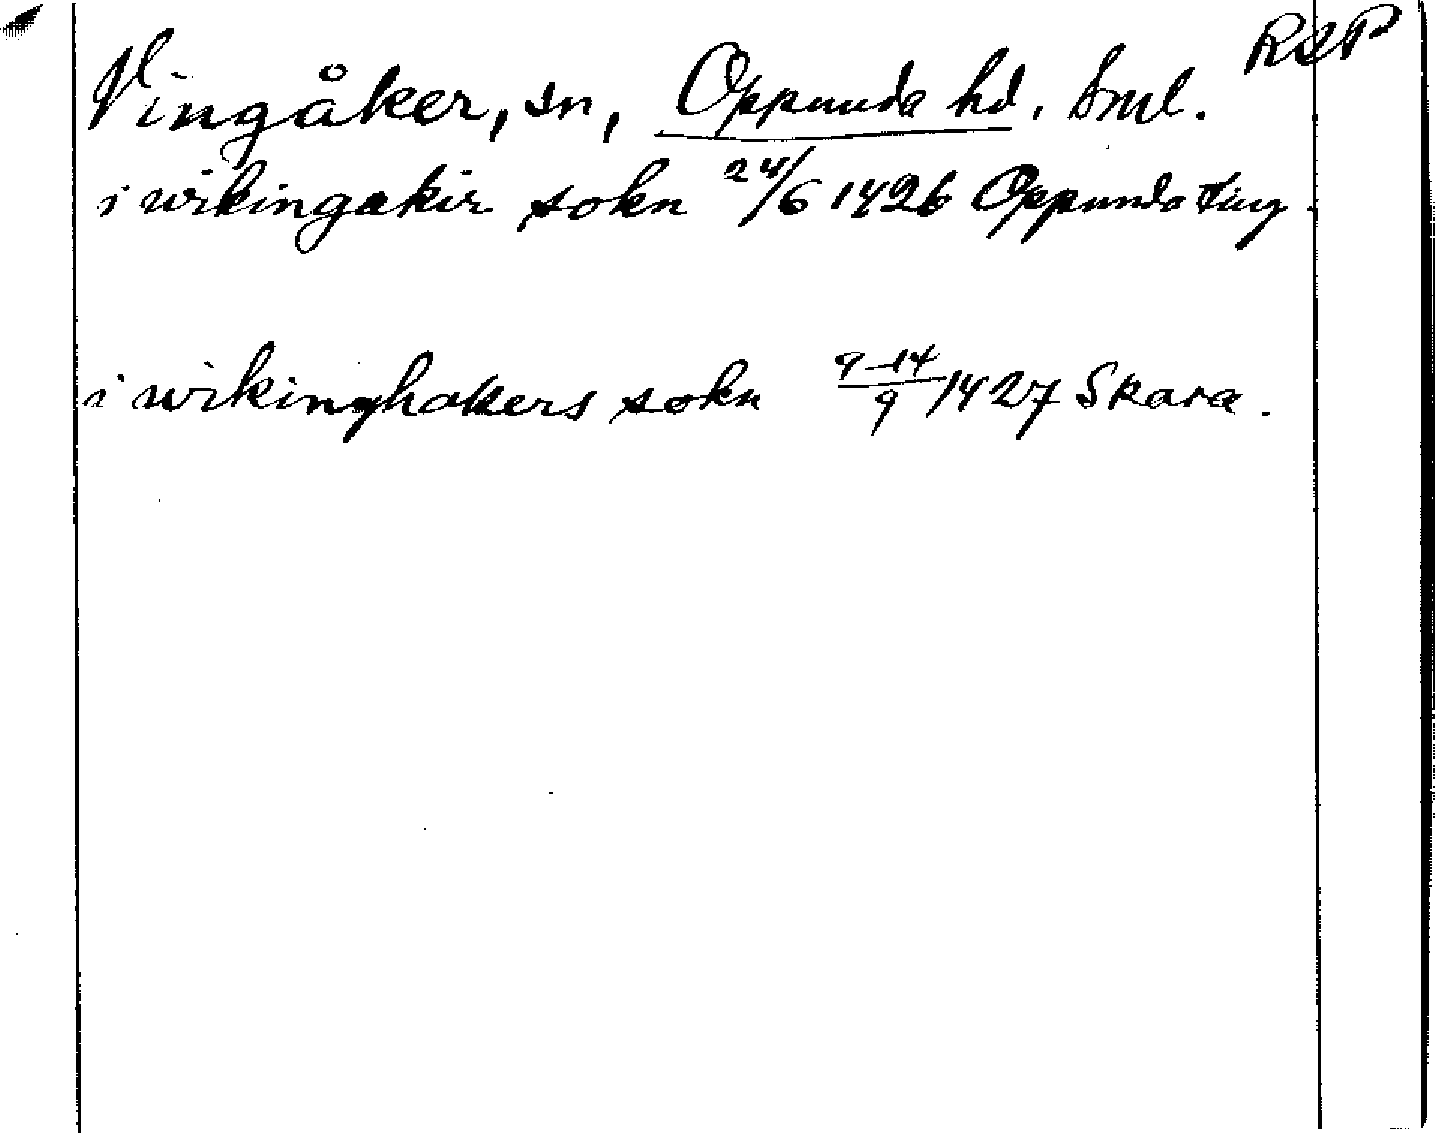 RAP
Vingåker, sn, Oppunda hd. Sml.
i wikingakir sokn 24/6 1426 Oppunda ting.
i wikinghakers sokn 9-14/9 1427 Skara.